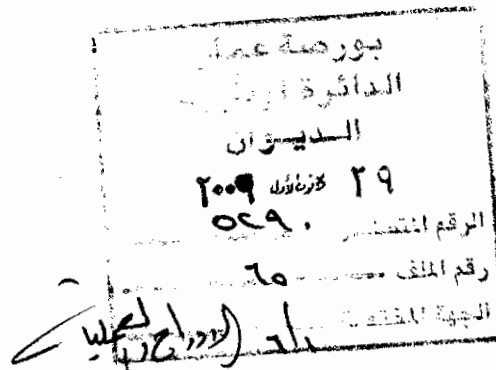 بورصة عمان
الدائرة
الديوان
٢٩ كانون الأول ٢٠٠٩
الرقم المتسلسل ٥٢٩٠
رقم الملف ٦٥
الجهة المختصة